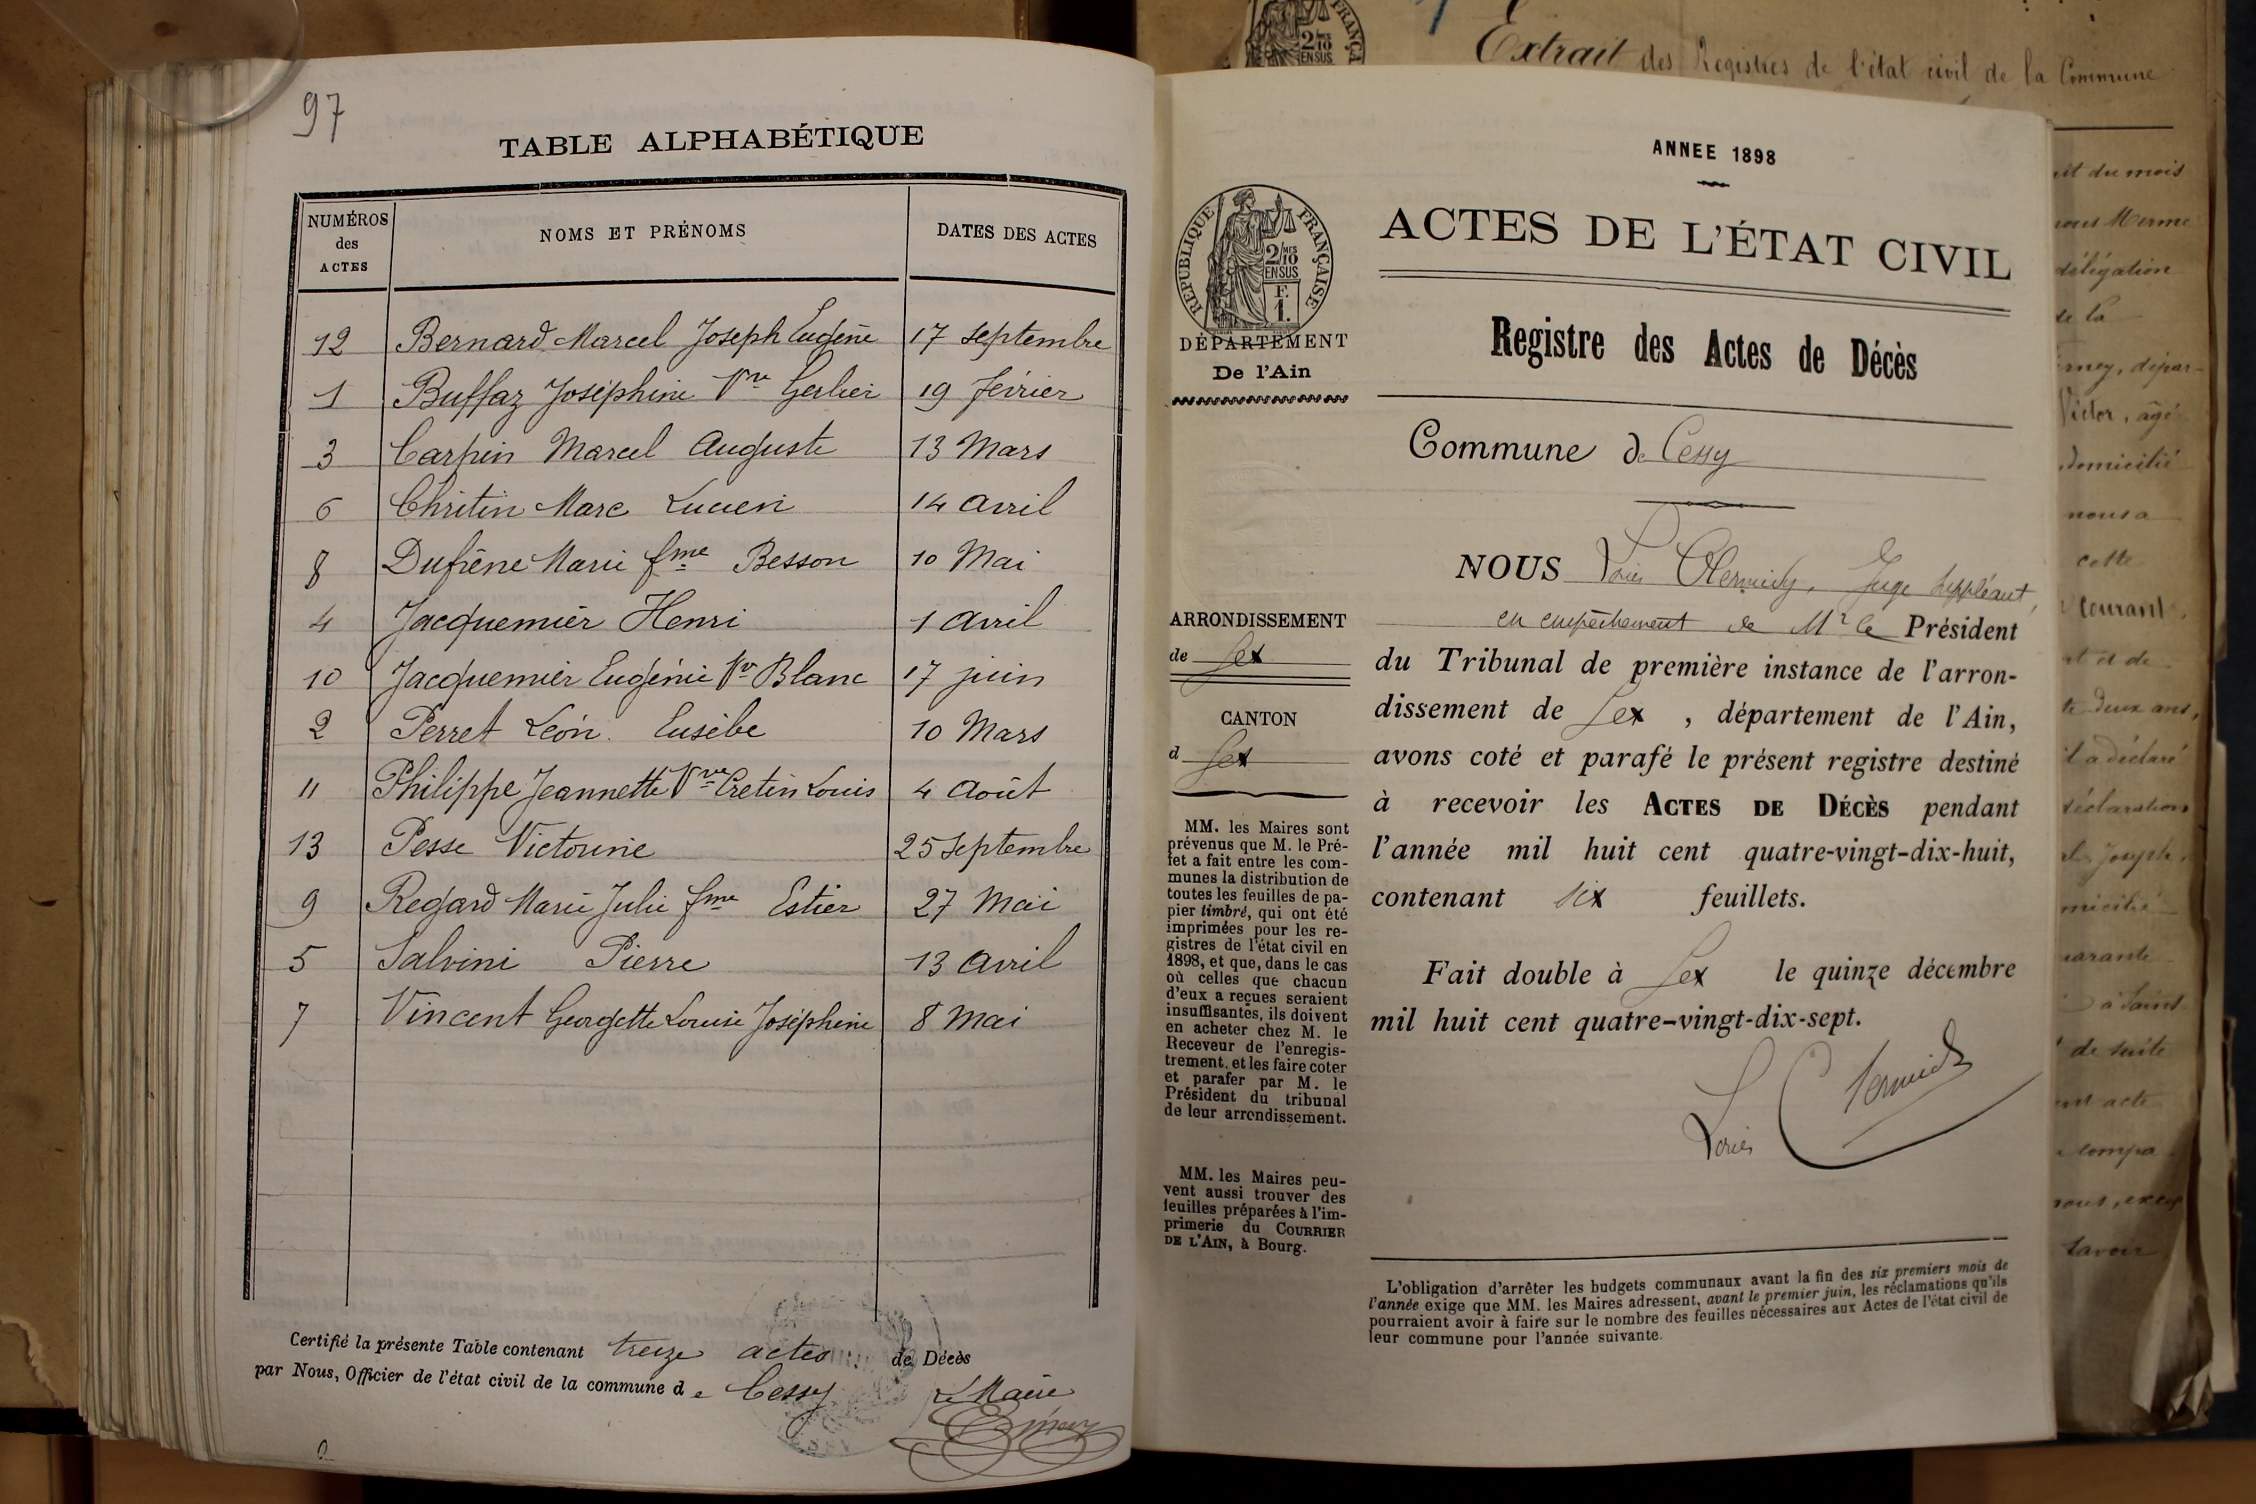 97
TABLE ALPHABÉTIQUE
NUMÉROS des ACTES | NOMS ET PRÉNOMS | DATES DES ACTES
12 | Bernard Marcel Joseph Eugène | 17 septembre
1 | Buffaz Joséphine Vve Gerlier | 19 février
3 | Carpin Marcel Auguste | 13 Mars
6 | Chritin Marc Lucien | 14 avril
8 | Dufrêne Marie fme Besson | 10 Mai
4 | Jacquemier Henri | 1 avril
10 | Jacquemier Eugénie Vve Blanc | 17 juin
2 | Perret Léon Eusèbe | 10 Mars
11 | Philippe Jeannette Vve Cretin Louis | 4 Août
13 | Pesse Victorine | 25 septembre
9 | Regard Marie Julie fme Estier | 27 Mai
5 | Salvini Pierre | 13 avril
7 | Vincent Georgette Louise Joséphine | 8 Mai
Certifié la présente Table contenant treize actes de Décès
par Nous, Officier de l'état civil de la commune de Cessy
Le Maire
Extrait des Registres de l'état civil de la Commune
ANNEE 1898
RÉPUBLIQUE FRANÇAISE
2/10 MES
EN SUS
F. 1.
ACTES DE L'ÉTAT CIVIL
DÉPARTEMENT
De l'Ain
Registre des Actes de Décès
Commune de Cessy
ARRONDISSEMENT
de Gex
CANTON
d Gex
MM. les Maires sont
prévenus que M. le Pré-
fet a fait entre les com-
munes la distribution de
toutes les feuilles de pa-
pier timbré, qui ont été
imprimées pour les re-
gistres de l'état civil en
1898, et que, dans le cas
où celles que chacun
d'eux a reçues seraient
insuffisantes, ils doivent
en acheter chez M. le
Receveur de l'enregis-
trement, et les faire coter
et parafer par M. le
Président du tribunal
de leur arrondissement.
MM. les Maires peu-
vent aussi trouver des
feuilles préparées à l'im-
primerie du COURRIER
DE L'AIN, à Bourg.
NOUS Juge suppléant,
en empêchement de Mr le Président
du Tribunal de première instance de l'arron-
dissement de Gex , département de l'Ain,
avons coté et parafé le présent registre destiné
à recevoir les ACTES DE DÉCÈS pendant
l'année mil huit cent quatre-vingt-dix-huit,
contenant six feuillets.
Fait double à Gex le quinze décembre
mil huit cent quatre-vingt-dix-sept.
L'obligation d'arrêter les budgets communaux avant la fin des six premiers mois de
l'année exige que MM. les Maires adressent, avant le premier juin, les réclamations qu'ils
pourraient avoir à faire sur le nombre des feuilles nécessaires aux Actes de l'état civil de
leur commune pour l'année suivante.
du mois
délégation
de la
Victor, âgé
domicilié
nous a
cette
courant,
et de
deux ans,
a déclaré
déclaration
Joseph,
quarante
de suite
acte
savoir